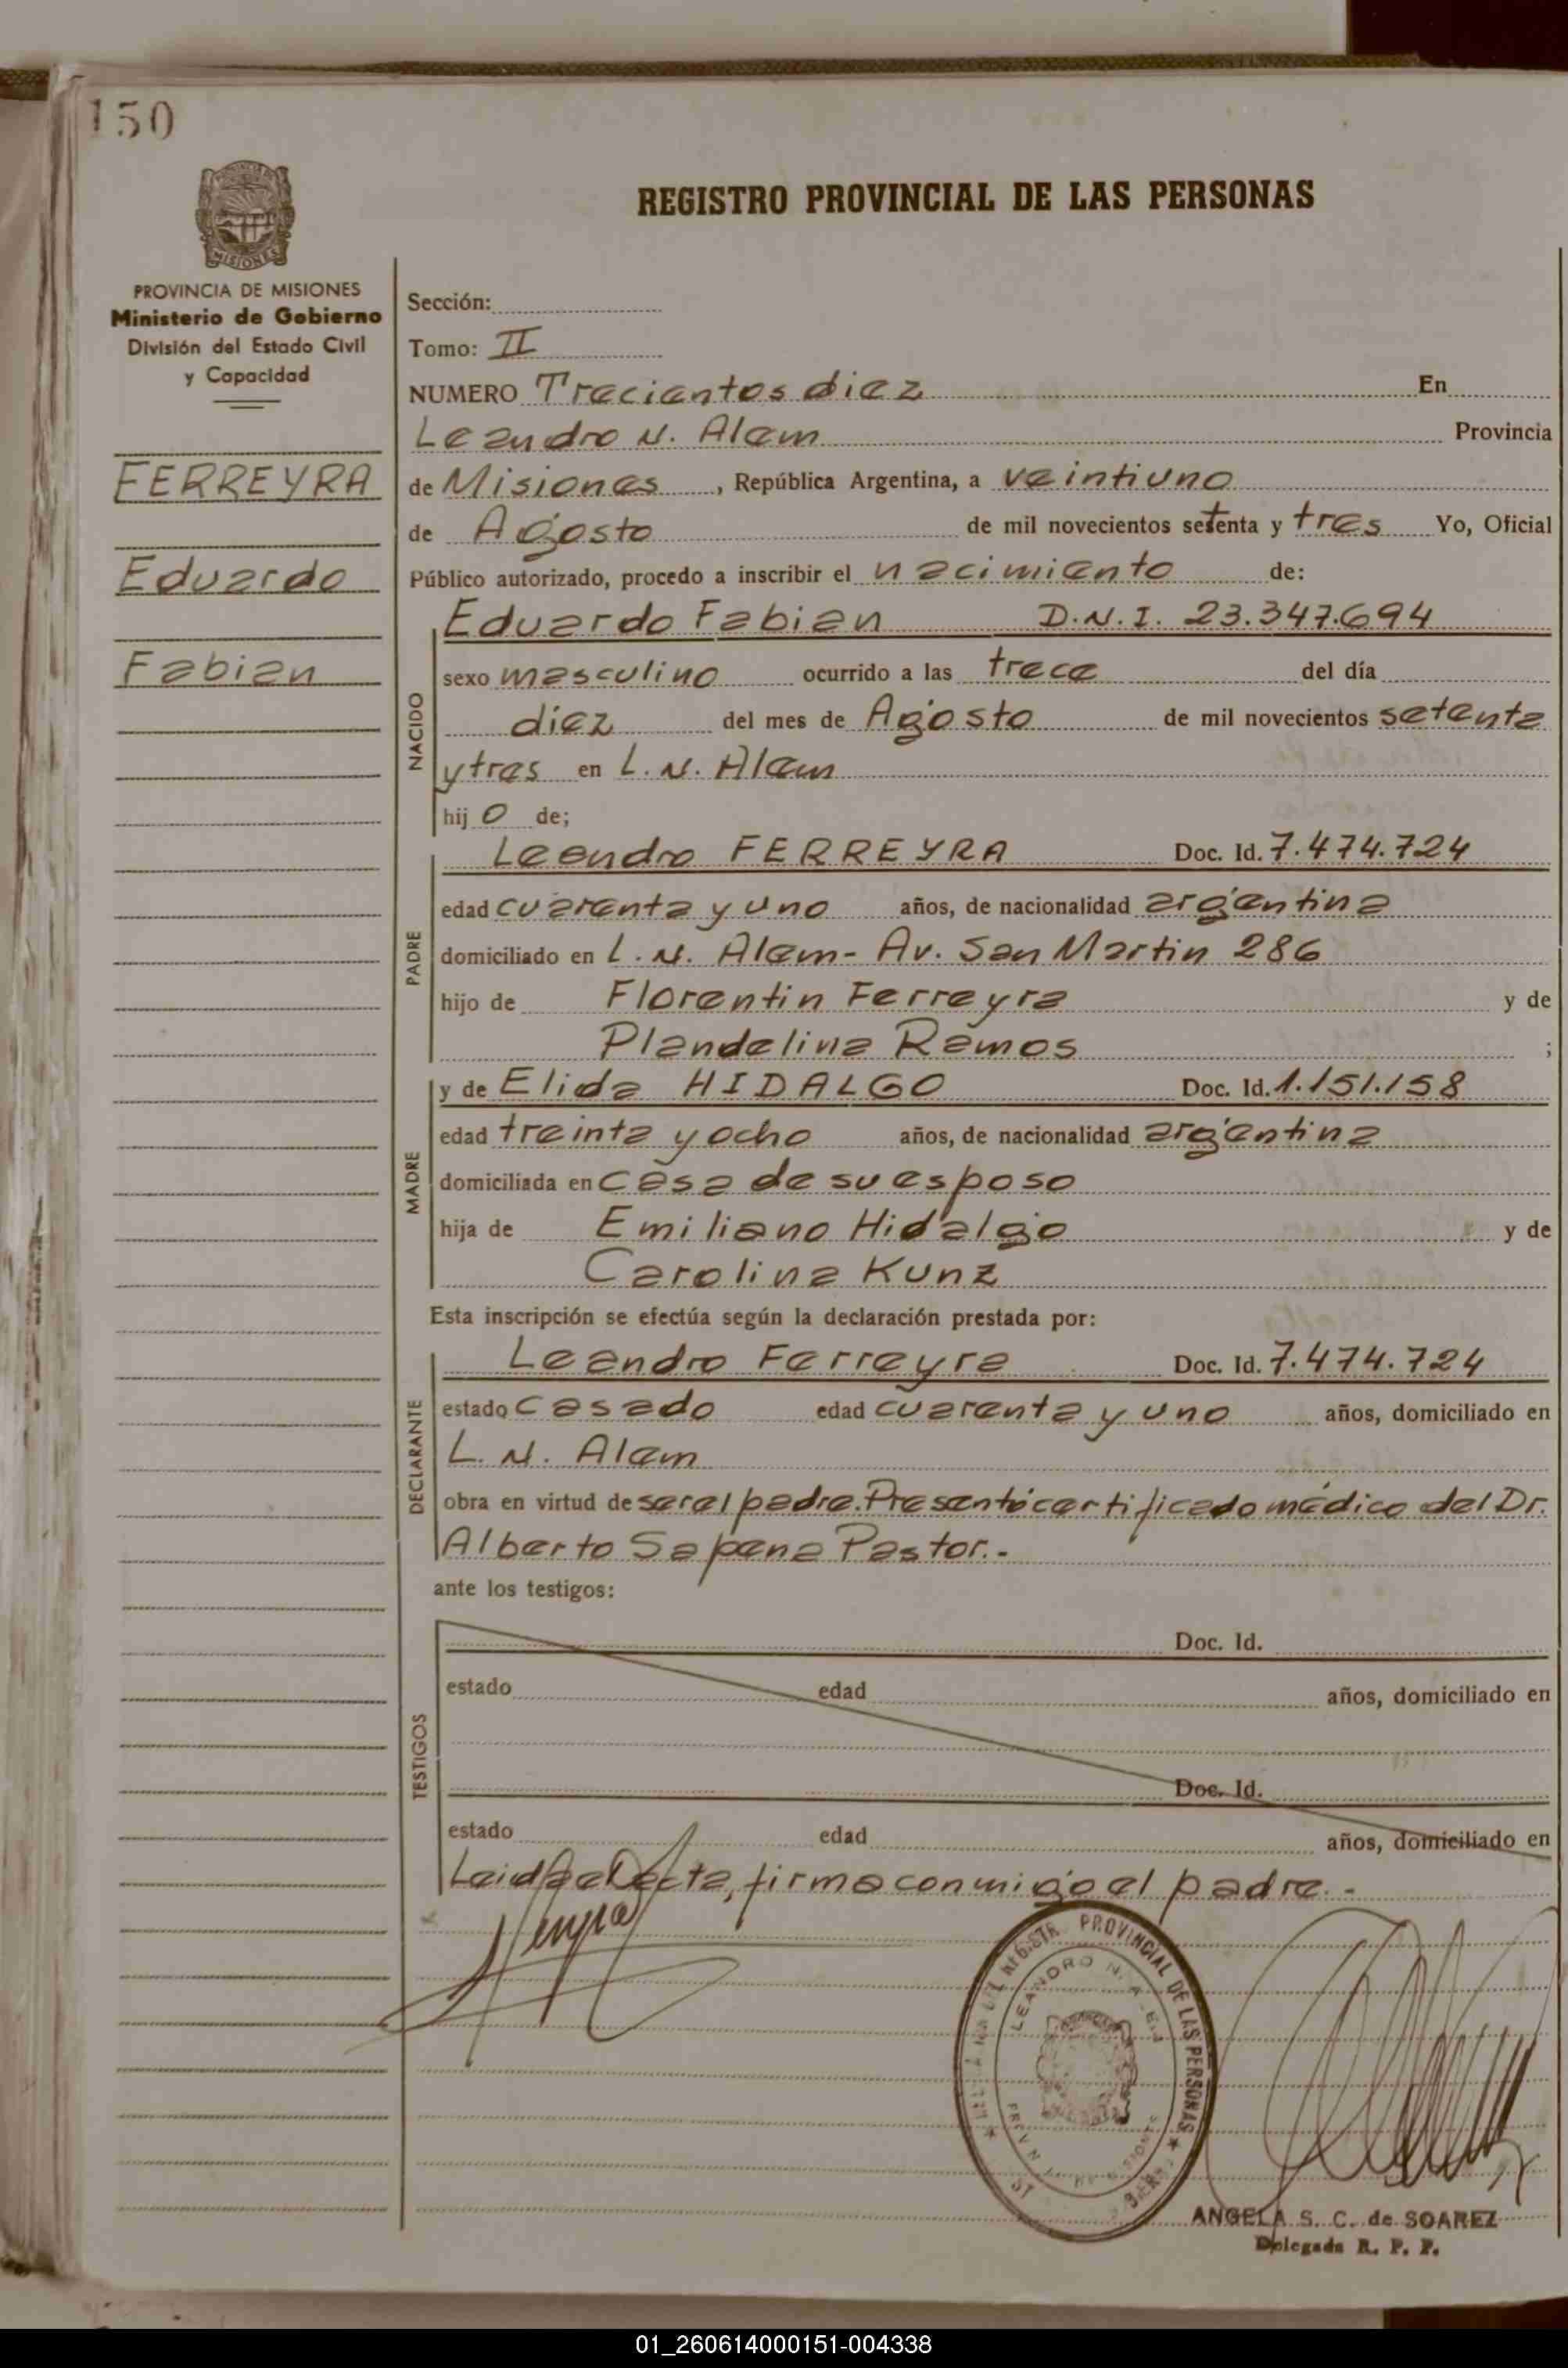 150
PROVINCIA DE MISIONES
MISIONES
REGISTRO PROVINCIAL DE LAS PERSONAS
PROVINCIA DE MISIONES
Ministerio de Gobierno
División del Estado Civil
y Capacidad
FERREYRA
Eduardo
Fabian
Sección:
Tomo: II
NUMERO Trecientos diez En
Leandro N. Alem Provincia
de Misiones, República Argentina, a veintiuno
de Agosto de mil novecientos setenta y tres Yo, Oficial
Público autorizado, procedo a inscribir el nacimiento de:
NACIDO
Eduardo Fabian D.N.I. 23.347.694
sexo masculino ocurrido a las trece del día
diez del mes de Agosto de mil novecientos setenta
y tres en L. N. Alem
hij o de;
PADRE
Leandro FERREYRA Doc. Id. 7.474.724
edad cuarenta y uno años, de nacionalidad argentina
domiciliado en L. N. Alem- Av. San Martin 286
hijo de Florentin Ferreyra y de
Plandelina Ramos ;
MADRE
y de Elida HIDALGO Doc. Id. 1.151.158
edad treinta y ocho años, de nacionalidad argentina
domiciliada en casa de su esposo
hija de Emiliano Hidalgo y de
Carolina Kunz
Esta inscripción se efectúa según la declaración prestada por:
DECLARANTE
Leandro Ferreyra Doc. Id. 7.474.724
estado casado edad cuarenta y uno años, domiciliado en
L. N. Alem
obra en virtud de ser el padre. Presentó certificado médico del Dr.
Alberto Sapena Pastor.-
ante los testigos:
TESTIGOS
Doc. Id.
estado edad años, domiciliado en
Doc. Id.
estado edad años, domiciliado en
Leida el Acta, firma conmigo el padre.-
PROVINCIAL DE LAS PERSONAS
LEANDRO N. ALEM
ANGELA S. C. de SOAREZ
Delegada R. P. P.
01_260614000151-004338